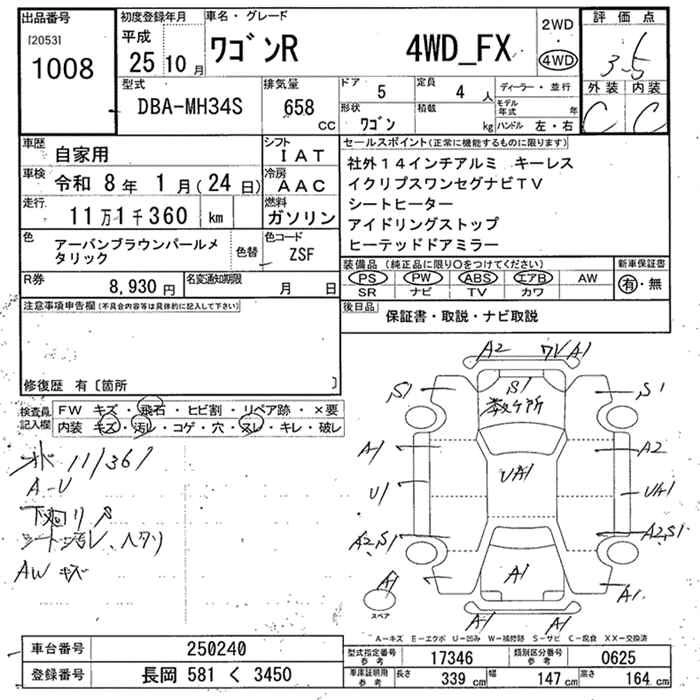 出品番号
[2053]
1008
初度登録年月
平成
25 10 月
車名・グレード
ワゴンR 4WD_FX
2WD
・
4WD
評価点
3.5
外装 内装
C C
型式
DBA-MH34S
排気量
658 cc
ドア 5
定員 4 人
ディーラー・並行
形状 ワゴン
積載 kg
モデル年式 年
ハンドル 左・右
車歴 自家用
シフト IAT
車検 令和 8 年 1 月(24 日)
冷房 AAC
走行 11 万 1 千 360 km
燃料 ガソリン
色 アーバンブラウンパールメタリック
色替
色コード ZSF
R券 8,930 円
名変通知期限 月 日
セールスポイント(正常に機能するものに限ります)
社外14インチアルミ キーレス
イクリプスワンセグナビTV
シートヒーター
アイドリングストップ
ヒーテッドドアミラー
装備品 (純正品に限り○をつけてください)
PS PW ABS エアB AW
SR ナビ TV カワ
新車保証書
有・無
後日品 保証書・取説・ナビ取説
注意事項申告欄(不具合内容等は具体的に記入して下さい)
修復歴 有〔箇所 〕
検査員記入欄
FW キズ ・ 飛石 ・ ヒビ割 ・ リペア跡 ・ ×要
内装 キズ ・ 汚レ ・ コゲ ・ 穴 ・ スレ ・ キレ ・ 破レ
111361
A-U
下廻りS
シート汚レ、ヘタリ
AW キズ
A2 ワレA1
S1 S1 S1
数ケ所
A1 A2
UA1
U1 UA1
A2,S1 A2,S1
A1 A1 A1
スペア
A1 A1
A-キズ E-エクボ U-凹み W-補修跡 S-サビ C-腐食 XX-交換済
車台番号 250240
登録番号 長岡 581 く 3450
型式指定番号 参考 17346
類別区分番号 参考 0625
車庫証明用 参考 長さ 339 cm 幅 147 cm 高さ 164 cm